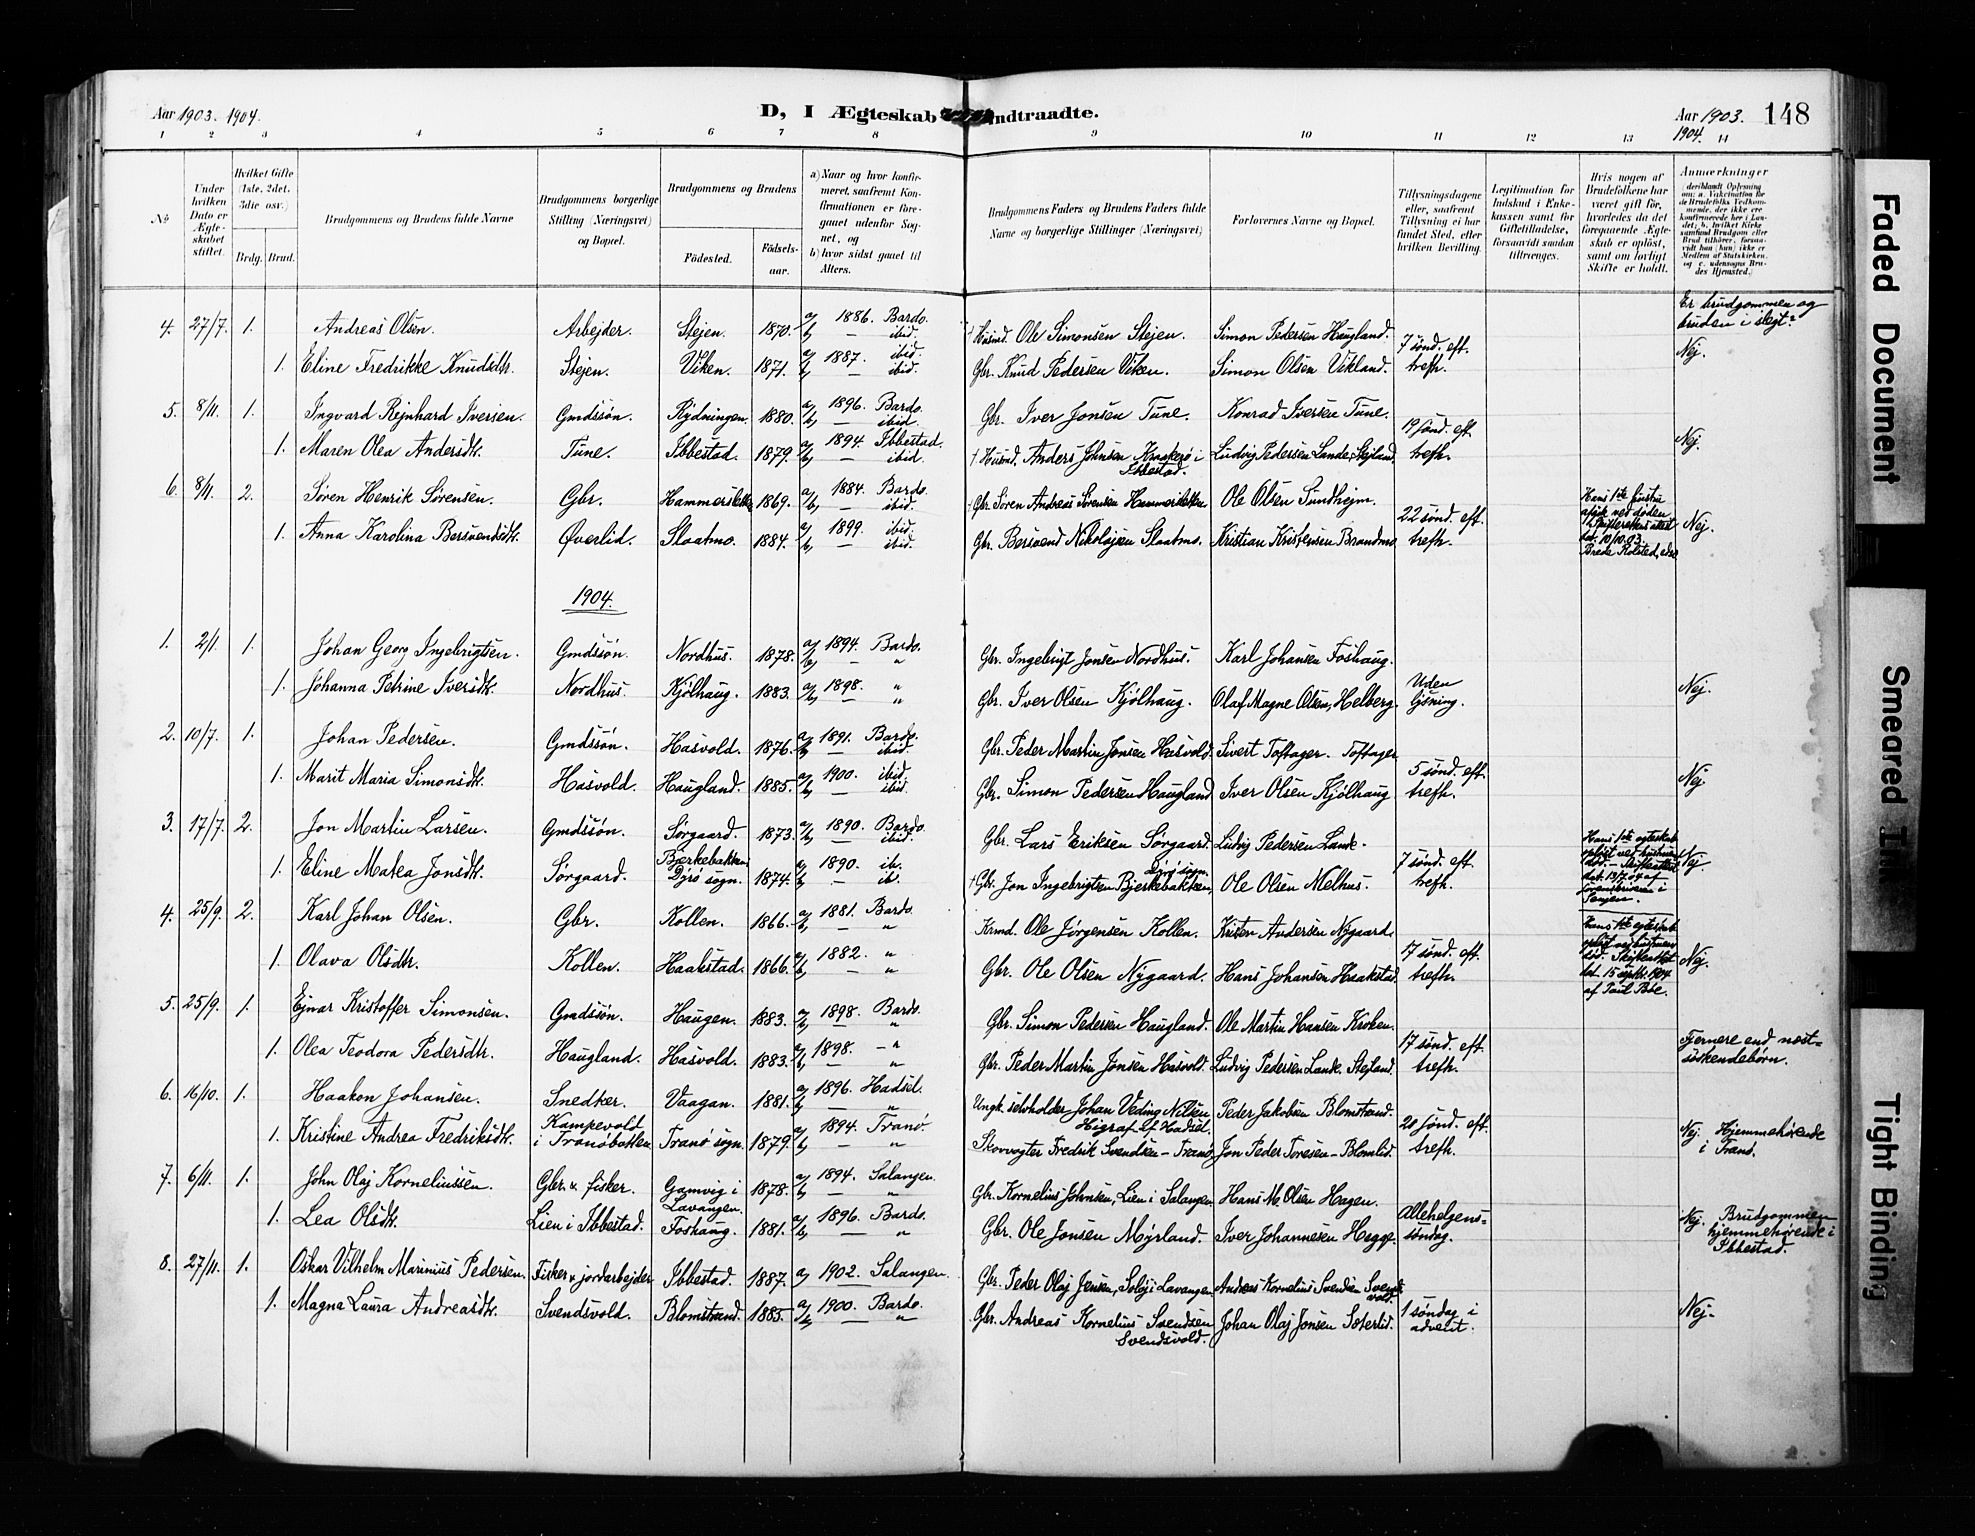 Aar 1903. 1904.
D, I Ægteskab indtraadte.
Aar 1903.
1904.
148
1 2 3 4 5 6 7 8 9 10 11 12 13 14
№
Under hvilken Dato er Ægteskabet stiftet.
Hvilket Gifte (1ste, 2det, 3die osv.)
Brdg. Brud.
Brudgommens og Brudens fulde Navne
Brudgommens borgerlige Stilling (Næringsvei) og Bopæl.
Brudgommens og Brudens
Fødested.
Fødselsaar.
a) Naar og hvor konfirmeret, saafremt Konfirmationen er foregaaet udenfor Sognet, og
b) hvor sidst gaaet til Alters.
Brudgommens Faders og Brudens Faders fulde Navne og borgerlige Stillinger (Næringsvei)
Forlovernes Navne og Bopæl.
Tillysningsdagene eller, saafremt Tillysning ei har fundet Sted, efter hvilken Bevilling.
Legitimation for Indskud i Enkekassen samt for Giftetilladelse, forsaavidt saadan tiltrænges.
Hvis nogen af Brudefolkene har været gift før, hvorledes da det foregaaende Ægteskab er opløst, samt om lovligt Skifte er holdt.
Anmærkninger
(deriblandt Oplysning om: a. Vakcination for de Brudefolks Vedkommende, der ikke ere konfirmerede her i Landet; b. hvilket Kirkesamfund Brudgom eller Brud tilhører, forsaavidt han (hun) ikke er Medlem af Statskirken, og c. udensogns Brudes Hjemsted.)
Er brudgommen og bruden i slegt?
4. 27/7. 1. Andreas Olsen. Arbejder. Stejen. 1870. a) 1886. Bardo. b) — ibid. † Husmd. Ole Simonsen Stejen. Simon Pedersen Haugland. 7 sønd. eft.
1. Eline Fredrikke Knudsdtr. Stejen. Viken. 1871. a) 1887. ibid. b) — ibid. Gbr. Knud Pedersen Viken. Simon Olsen Vikland. trefh. Nej.
5. 8/11. 1. Ingvard Rejnhard Iversen. Gmdssøn. Rydningen. 1880. a) 1896. Bardo. b) — ibid. Gbr. Iver Jonsen Tune. Konrad Iversen Tune. 19 sønd. eft.
1. Maren Olea Andersdtr. Tune. Ibbestad. 1879. a) 1894. Ibbestad. b) — ibid. † Husmd. Anders Johnsen Kraakerø i Ibbestad. Ludvig Pedersen Lande, Stejland. trefh. Nej.
6. 8/11. 2. Søren Henrik Sørensen. Gbr. Hammersletten 1869. a) 1884. Bardo. b) — ibid. Gbr. Søren Andreas Sørensen Hammersletten Ole Olsen Sundhejm. 22 sønd. eft. Hans 1ste hustru afgik ved døden. Skifterettens attest dat. 10/10.03.
1. Anna Karolina Bersvendsdtr. Øverlid. Slaatmo. 1884. a) 1899. ibid. b) — ibid. Gbr. Bersvend Nikolajsen Slaatmo. Kristian Kristensen Brandmo. trefh. Nej.
1904.
1. 2/1. 1. Johan Georg Ingebrigtsen. Gmdssøn. Nordhus. 1878. a) 1894. Bardo. b) — " Gbr. Ingebrigt Jonsen Nordhus. Karl Johansen Foshaug.
1. Johanna Petrine Iversdtr. Nordhus. Kjølhaug. 1883. a) 1898. " b) — " Gbr. Iver Olsen Kjølhaug. Olaf Magne Olsen, Helberg. Uden lysning. Nej.
2. 10/7. 1. Johan Pedersen. Gmdssøn. Hasvold. 1876. a) 1891. Bardo. b) — ibid. Gbr. Peder Martin Jonsen Hasvold. Sivert Toftager. Toftager 5 sønd. eft.
1. Marit Maria Simonsdtr. Hasvold. Haugland. 1885. a) 1900. ibid. b) — ibid. Gbr. Simon Pedersen Haugland Iver Olsen Kjølhaug trefh. Nej
3. 17/7. 2. Jon Martin Larsen. Gmdssøn. Sørgaard. 1873. a) 1890. Bardo. b) — ibid. Gbr. Lars Eriksen Sørgaard. Ludvig Pedersen Lande. 7 sønd. eft.
1. Eline Matea Jonsdtr. Sørgaard. Bjerkebakken Dyrø sogn. 1874. a) 1890. ib. b) — ib. † Gbr. Jon Ingebrigtsen Bjerkebakken, Dyrø sogn. Ole Olsen Melhus. trefh. Nej.
4. 25/9. 2. Karl Johan Olsen. Gbr. Kollen. 1866. a) 1881. Bardo. b) — " Ole Jørgensen Kollen. Kristen Andersen Nygaard. 17 sønd. eft. Hans 1ste egteskab opløst ved hustruens død. Skifteattest dat. 15 septbr. 1904
1. Olava Olsdtr. Kollen. Haakstad. 1866. a) 1882. " b) — " Gbr. Ole Olsen Nygaard. Hans Johansen Haakstad trefh. Nej.
5. 25/9. 1. Ejnar Kristoffer Simonsen. Gmdssøn. Haugen. 1883. a) 1898. Bardo. b) — " Gbr. Simon Pedersen Haugland. Ole Martin Hansen Kroken. 17 sønd. eft.
1. Olea Teodora Pedersdtr. Haugland. Hasvold. 1883. a) 1898. — " b) — " Gbr. Peder Martin Jonsen Hasvold. Ludvig Pedersen Lande. Stejland. trefh. Fjernere end næst=søskendebørn.
6. 16/10. 1. Haakon Johansen. Snedker. Vaagan. 1881. a) 1896. Hadsel. b) — " Ungk. selvholder Johan Veding Nilsen Hadsel. Peder Jakobsen Blomstrand. 20 sønd. eft.
1. Kristine Andrea Fredriksdtr. Kampevold i Tranøbotten Tranø sogn. 1879. a) 1894. Tranø b) — " Skovvogter Fredrik Svendsen – Tranø Jon Peder Toresen – Blomlid. trefh. Nej. Hjemmehørende i Tranø.
7. 6/11. 1. John Olaj Korneliussen. Gbr. & fisker. Gamvig i Lavangen. 1878. a) 1894. Salangen. b) — " Gbr. Kornelius Johnsen, Lien i Salangen Hans M. Olsen Hagen. Allehelgens=
1. Lea Olsdtr. Lien i Ibbestad. Foshaug. 1881. a) 1896. Bardo. b) — " Gbr. Ole Jonsen Myrland. Iver Johannesen Hegge. søndag. Nej. Brudgommen hjemmehørende i Ibbestad.
8. 27/11. 1. Oskar Vilhelm Marinius Pedersen. Fisker & jordarbejder Ibbestad. 1887. a) 1902. Salangen. Gbr. Peder Olaj Jensen, Soløj i Lavangen Andreas Kornelius Svendsen Svendsvold. 1 søndag i
1. Magna Laura Andreasdtr. Svendsvold. Blomstrand. 1885. a) 1900. Bardo. b) — " Gbr. Andreas Kornelius Svendsen Svendsvold. Johan Olaj Jonsen Sæterlid. advent. Nej.
Faded Document
Smeared Ink
Tight Binding